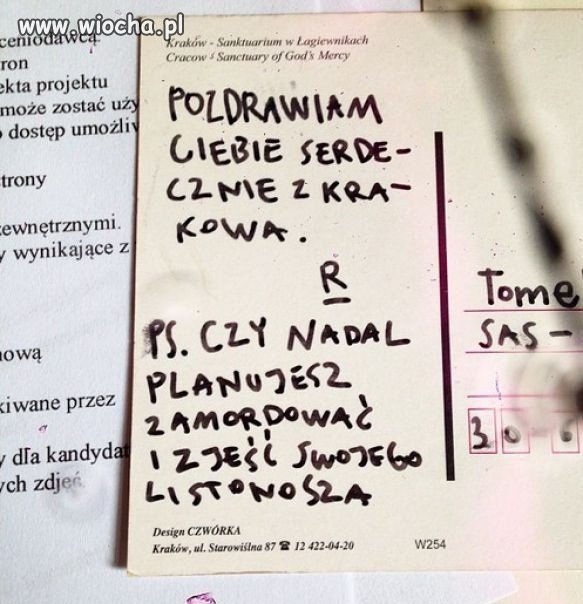 www.wiocha.pl
ceniodawcą
ekta projektu
może zostać uży
dostęp umożliw
trony
zewnętrznymi.
y wynikające z
kiwane przez
y dla kandydat
ych zdjęć
Kraków - Sanktuarium w Łagiewnikach
Cracow - Sanctuary of God's Mercy
POZDRAWIAM
CIEBIE SERDE-
CZNIE Z KRA-
KOWA.
R
PS. CZY NADAL
PLANUJESZ
ZAMORDOWAĆ
I ZJEŚĆ SWOJEGO
LISTONOSZA
Tome
SAS-
30-6
Design CZWÓRKA
Kraków, ul. Starowiślna 87 ☎ 12 422-04-20
W254